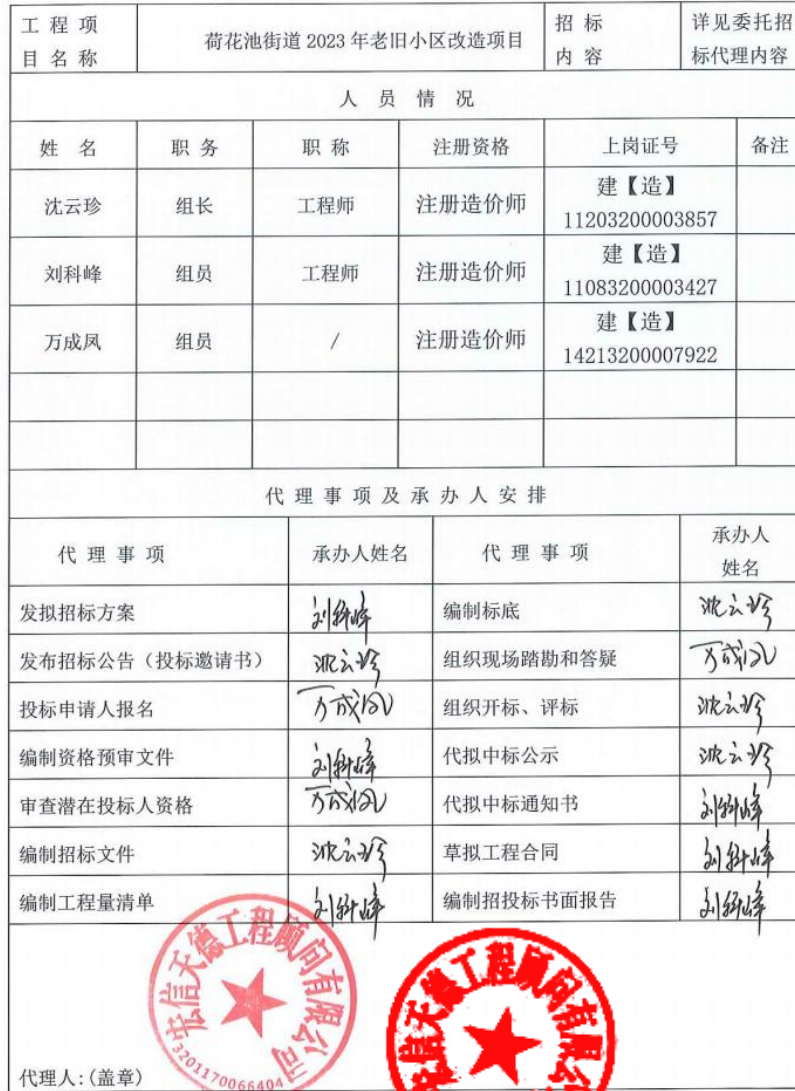 工程项目名称 荷花池街道 2023 年老旧小区改造项目 招标内容 详见委托招标代理内容
人员情况
姓名 职务 职称 注册资格 上岗证号 备注
沈云珍 组长 工程师 注册造价师 建【造】11203200003857
刘科峰 组员 工程师 注册造价师 建【造】11083200003427
万成凤 组员 / 注册造价师 建【造】14213200007922
代理事项及承办人安排
代理事项 承办人姓名 代理事项 承办人姓名
发拟招标方案 刘科峰 编制标底 沈云珍
发布招标公告（投标邀请书） 沈云珍 组织现场踏勘和答疑 万成凤
投标申请人报名 万成凤 组织开标、评标 沈云珍
编制资格预审文件 刘科峰 代拟中标公示 沈云珍
审查潜在投标人资格 万成凤 代拟中标通知书 刘科峰
编制招标文件 沈云珍 草拟工程合同 刘科峰
编制工程量清单 刘科峰 编制招投标书面报告 刘科峰
宏信天德工程顾问有限公司
3201170066404
宏信天德工程顾问有限公
代理人:(盖章)